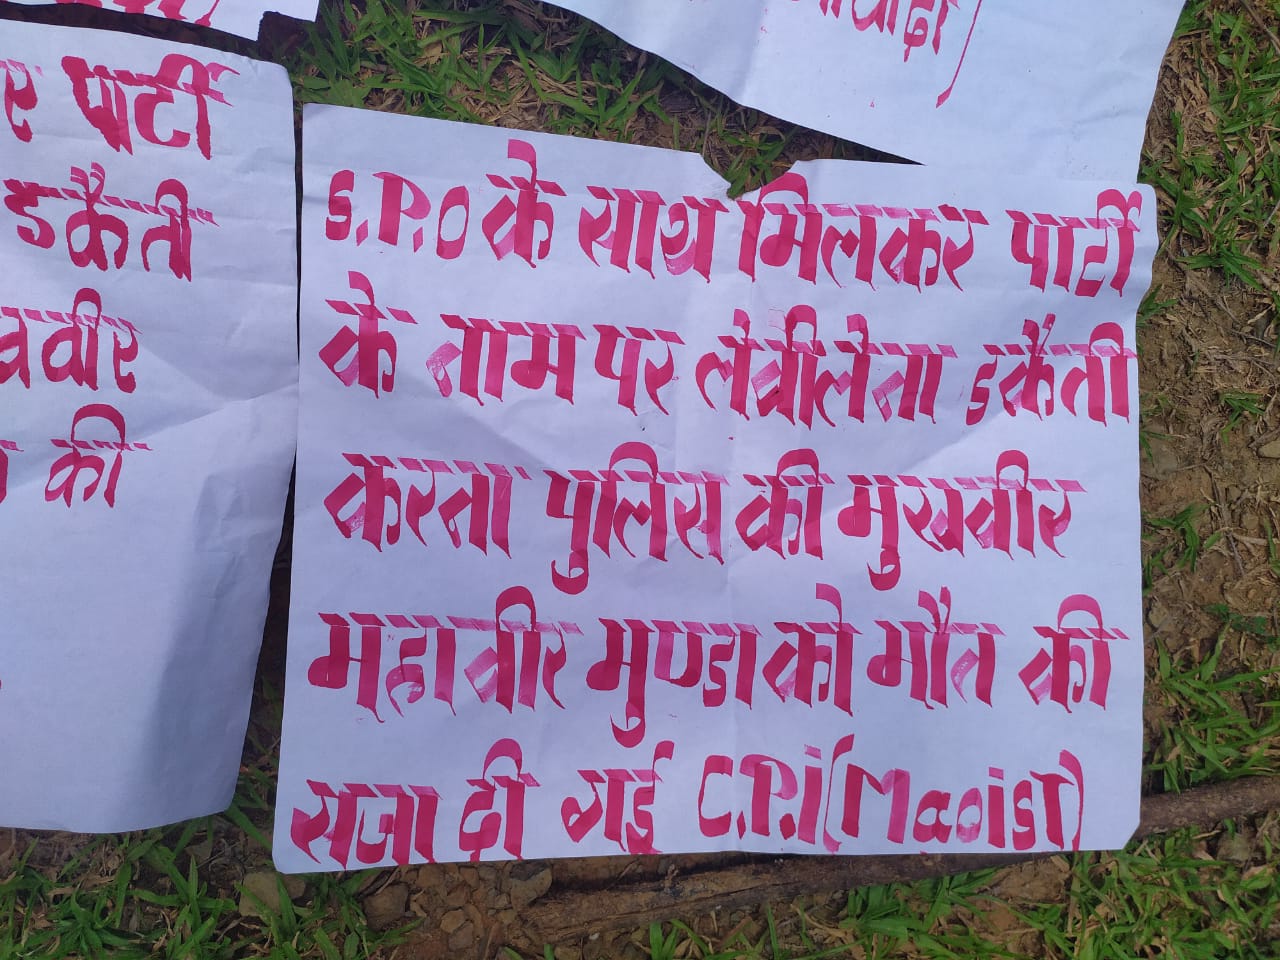 पार्टी
डकैती
की
S.P.O के साथ मिलकर पार्टी
के नाम पर लेवी लेता डकैती
करता पुलिस की मुखवीर
महावीर मुण्डा को मौत की
सजा दी गई C.P.i(Maoist)